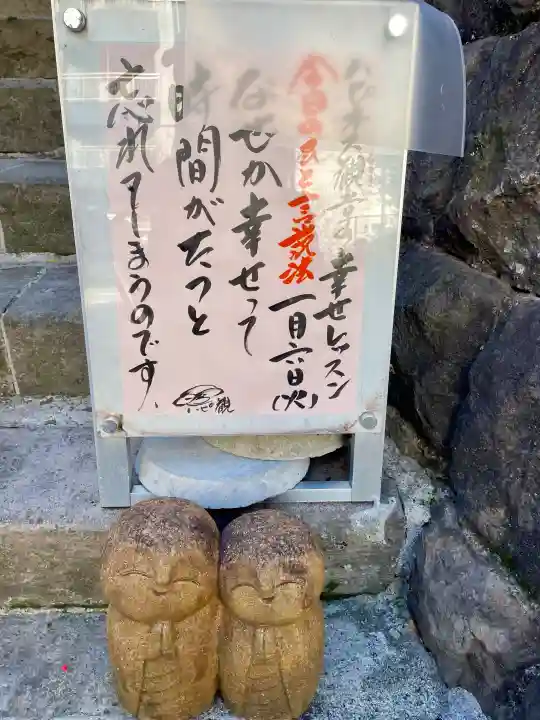 ハッピー観音の幸せレッスン
今日のひと言説法
一月六日(火)
なぜか幸せって
時間がたつと
忘れてしまうのです。
ハッピー観